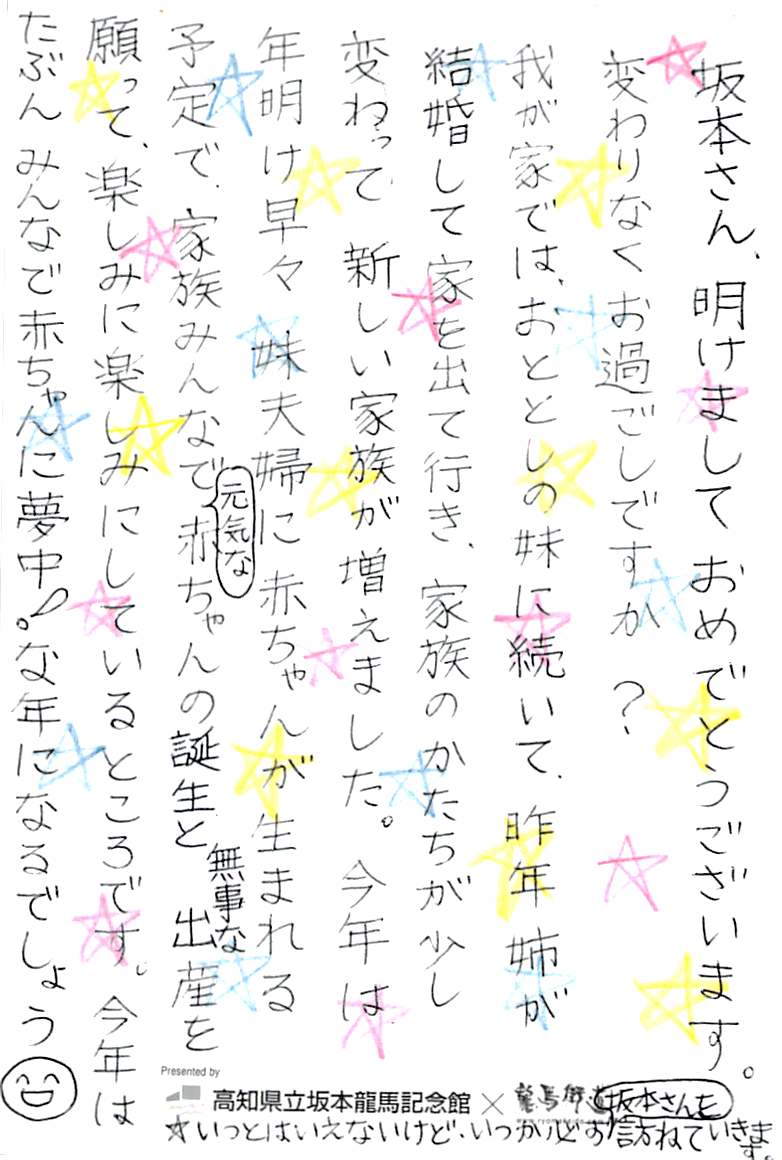 坂本さん、明けましておめでとうございます。
変わりなくお過ごしですか？
我が家では、おととしの妹に続いて、昨年姉が
結婚して家を出て行き、家族のかたちが少し
変わって、新しい家族が増えました。今年は
年明け早々妹夫婦に赤ちゃんが生まれる
予定で、家族みんなで元気な赤ちゃんの誕生と無事な出産を
願って、楽しみに楽しみにしているところです。今年は
たぶんみんなで赤ちゃんに夢中！な年になるでしょう
Presented by
高知県立坂本龍馬記念館×龍馬街道
☆いつとはいえないけど、いつか坂本さんを訪ねていきます。